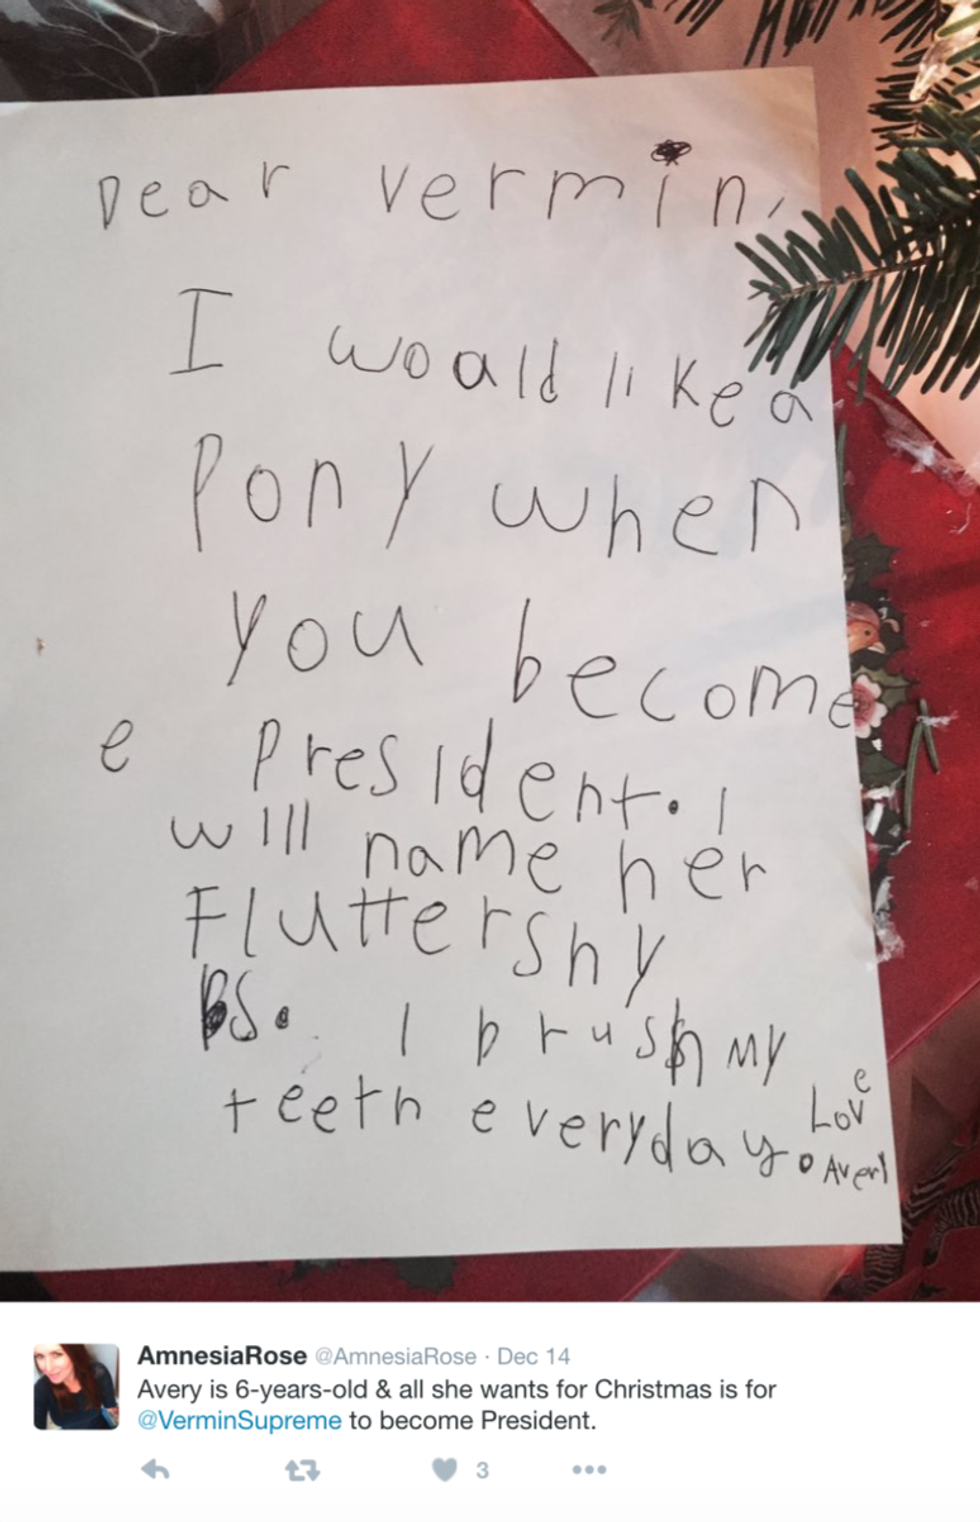 Dear Vermin,
I woald like a
Pony when
you become
e President. I
will name her
Fluttershy
PS. I brush my
teeth everyday. Love
Avery
AmnesiaRose @AmnesiaRose · Dec 14
Avery is 6-years-old & all she wants for Christmas is for
@VerminSupreme to become President.
3